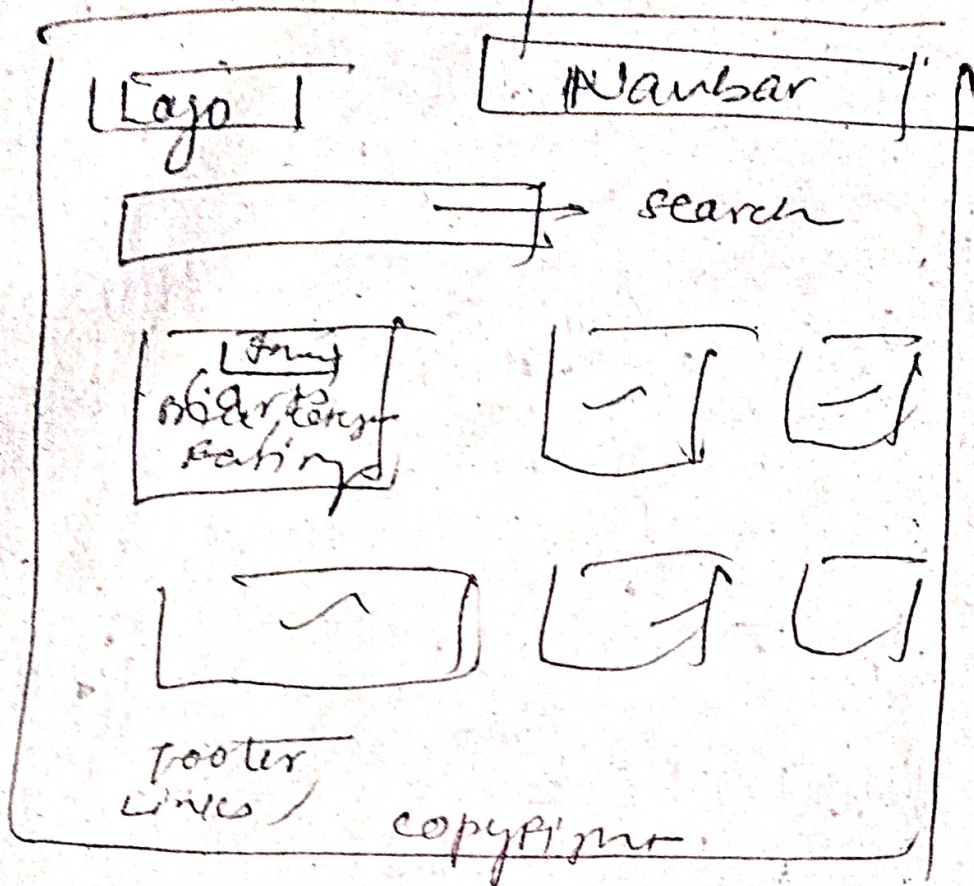 Logo
Navbar
search
Rating
Footer
Links
copyright